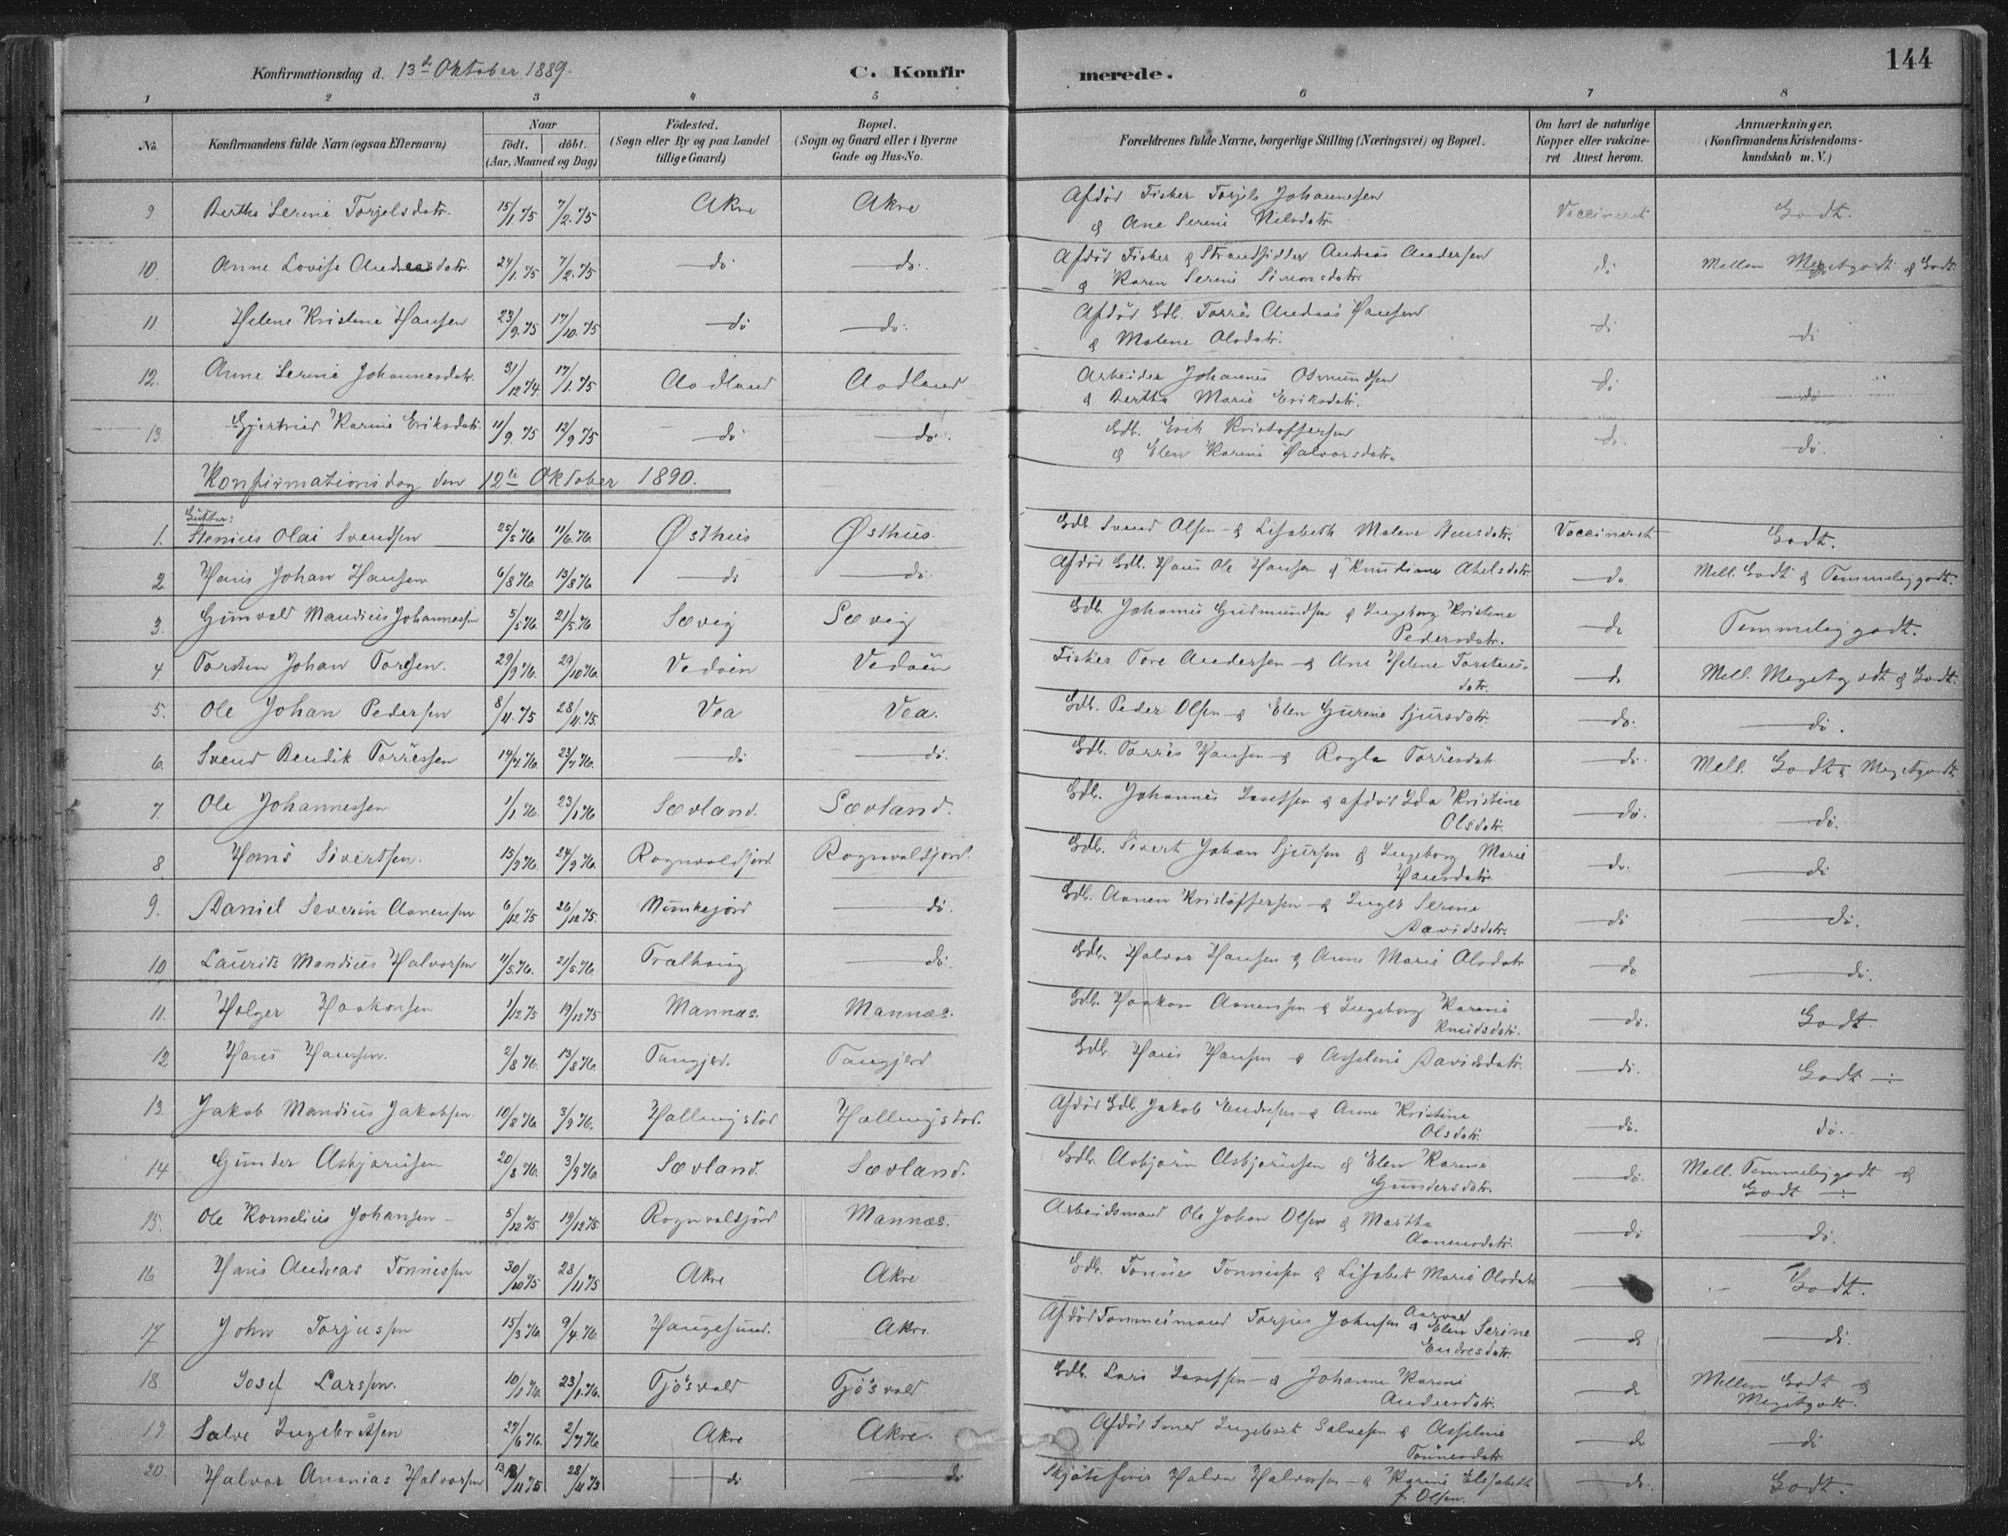 144
Konfirmationsdag d. 13de Oktober 1889.
C. Konfirmerede.
1 2 3 4 5 6 7 8
No.
Konfirmandens fulde Navn (ogsaa Efternavn)
Naar
født. døbt.
(Aar, Maaned og Dag)
Fødested.
(Sogn eller By og paa Landet
tillige Gaard)
Bopæl.
(Sogn og Gaard eller i Byerne
Gade og Hus-No.
Forældrenes fulde Navne, borgerlige Stilling (Næringsvei) og Bopæl.
Om havt de naturlige
Kopper eller vakcine-
ret Attest herom.
Anmærkninger.
(Konfirmandens Kristendoms-
kundskab m. V.)
9 Berthe Serine Torjelsdatr. 15/1.75 7/2.75 Akre Akre Afdød Fisker Torjels Johannesen
& Ane Serine Nilsdatr. Vaccineret Godt.
10. Anne Lovise Andreasdatr. 24/1.75 7/2.75 do do. Afdød Fisker & Strandsidder Andreas Andersen
& Karen Serine Simonsdatr. do Mellem Megetgodt & Godt
11 Helene Kristine Hansen 23/9.75 17/10.75 do do. Afdød Gdb. Torres Andreas Hansen
& Malene Olsdatr. do do
12. Anne Serine Johannesdatr. 31/12 74. 17/1.75 Aadland Aadland Arbeider Johannes Osmundsen
& Bertha Marie Eriksdatr. do do
13. Gjertrud Karine Eriksdatr. 11/9.75 12/9 75 do do. Gdb. Erik Kristoffersen
& Elen Karine Halvorsdatr. do. do.
Konfirmationsdag den 12te Oktober 1890.
Gutter:
1. Stenius Olai Svendsen 25/5 76 11/6.76 Østhus Østhus. Gdb. Svend Olsen & Lisabeth Malene Hansdatr. Vaccineret Godt.
2 Hans Johan Hansen 6/8 76. 13/8 76 do do. Afdød Gdb. Hans Ole Hansen & Knudine Abelsdatr. do Mell. Godt & Temmeliggodt.
3. Gunvald Mandius Johannessen 5/5 76. 21/5.76. Sævig Sævig Gdb. Johannes Gudmundsen & Ingeborg Kristine
Pedersdatr. do Temmelig godt.
4. Torsten Johan Toresen. 29/9 76. 29/10 76. Vedøen Vedøen Fisker Tore Andersen & Ane Helene Torstens-
datr. do Mell. Megetgodt & Godt.
5. Ole Johan Pedersen 8/11.75 28/11.75. Vea Vea. Gdb. Peder Olsen & Elen Gurine Sjursdatr. do. do.
6. Svend Bendik Torresen 14/7.76. 23/7 76. do do. Gdb. Torres Hansen & Ragla Torresdatr. do. Mell. Godt & Megetgodt
7. Ole Johannessen 1/1 76. 23/1 76 Sævland. Sævland. Gdb. Johannes Josefsen & afdød Ida Kristine
Olsdatr. do. do.
8 Hans Sivertsen. 15/9 76. 24/9 76. Rognvaldsjord Rognvaldsjord. Gdb. Sivert Johan Sjursen & Ingeborg Marie
Hansdatr. do. do
9. Daniel Severin Aanensen 6/12 75 26/12 75. Munkejord do. Gdb. Aanen Kristoffersen & Inger Serine
Davidsdatr. do do.
10 Laurits Mandius Halvorsen 11/5.76. 21/5.76 Tralhaug do. Gdb. Halvor Hansen & Anne Marie Olsdatr do do.
11. Holger Haakonsen 1/12 75 19/12 75 Mannæs. Mannæs. Gdb. Haakon Aanensen & Ingeborg Karine
Knudsdatr. do. Godt
12 Hans Hansen. 2/8 76. 13/8 76. Tangjerd. Tangjerd. Gdb. Hans Hansen & Asseline Davidsdatr. do. Godt
13. Jakob Mandius Jakobsen 10/8 76. 3/9 76. Hallingstad Hallingstad. Afdød Gdb. Jakob Endresen & Anne Kristine
Olsdatr. do. do.
14 Gunder Asbjørnsen 20/8 76. 3/9 76. Sævland. Sævland. Gdb. Asbjørn Asbjørnsen & Elen Karine
Gundersdatr. do. Mell. Temmeliggodt &
Godt
15. Ole Kornelius Johansen 5/12 75 19/12 75 Rognvaldsjord Mannæs. Arbeidsmand Ole Johan Olsen & Martha
Aanensdatr. do do.
16 Hans Andreas Tonnessen 30/10 75 28/11 75 Akre Akre Gdb. Tonnes Tonnessen & Lisabet Marie Olsdatr Godt.
17 John Torjusen 15/3 76. 9/4 76. Haugesund. Akre Afdød Tømmermand Torjus Johnsen Aarvad & Elen Serine
Endresdatr. do do
18. Josef Larssen. 10/1 76. 23/1.76. Tjøsvold Tjøsvold Gdb. Lars Josefsen & Johanne Karine
Andersdatr. do Mellem Godt &
Megetgodt.
19. Salve Ingebretsen 27/6 76. 2/7 76. Akre Akre. Afdød Smed Ingebret Salvesen & Asseline
Tonnesdatr. do do
20. Halvor Ananias Halvorsen 13/11 75 28/11 75 do do Halvor Halvorsen & Karine Elisabeth
f. Olsen. do. Godt.